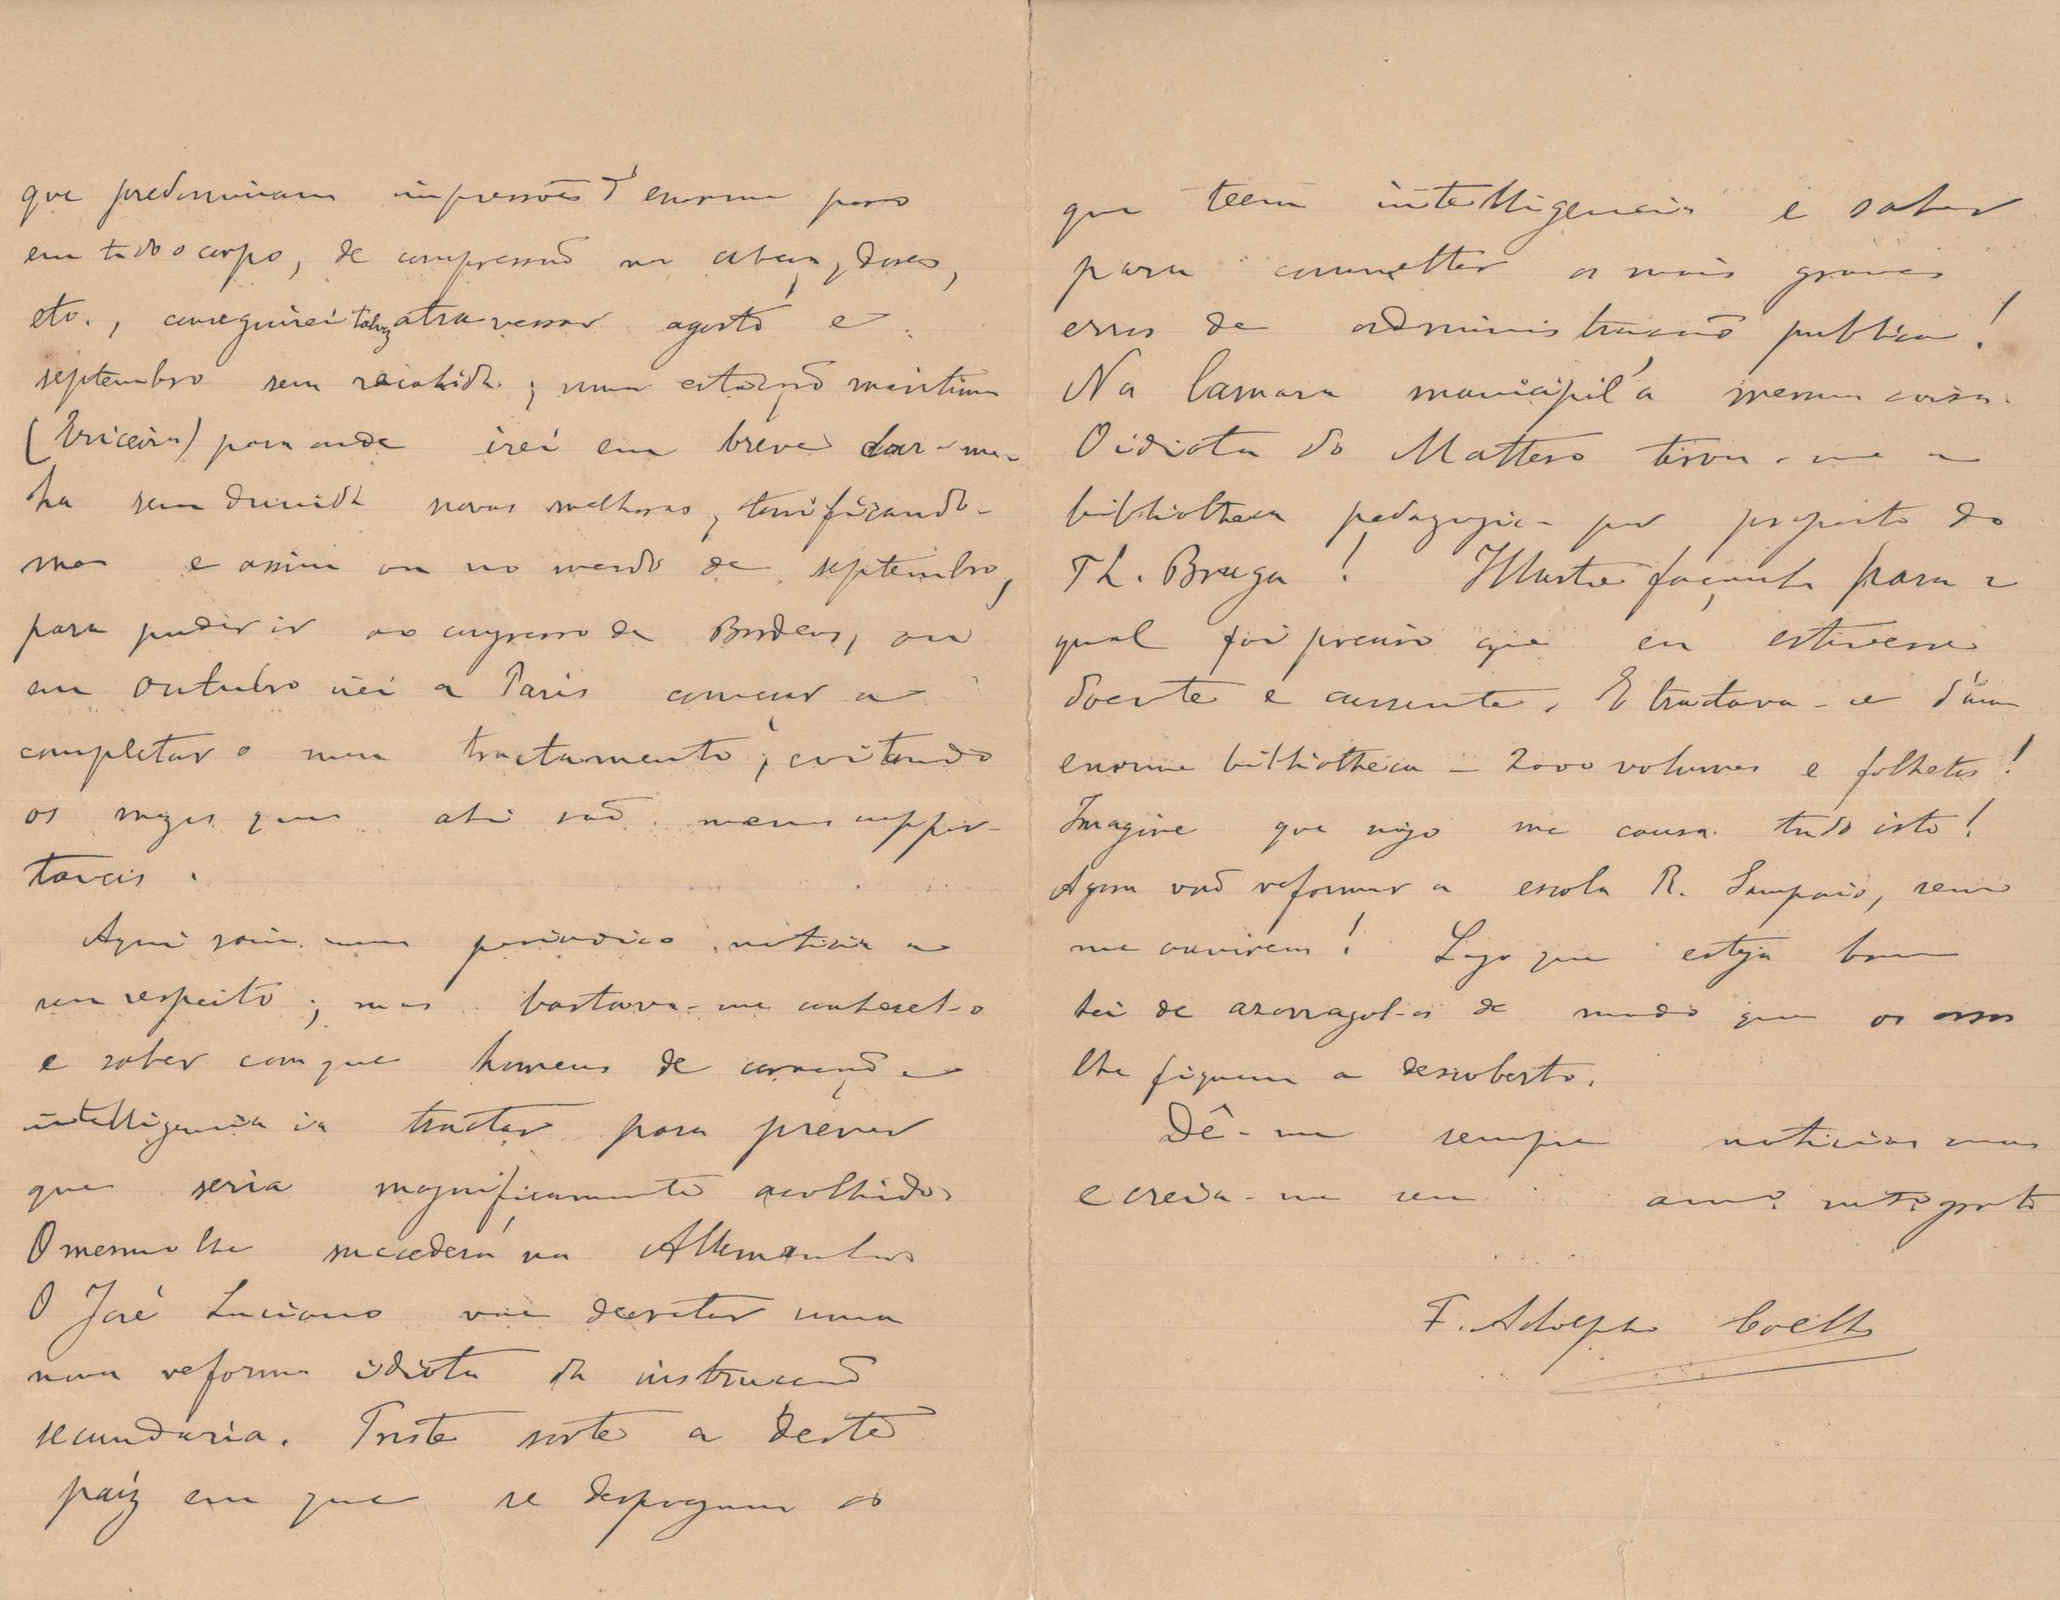 que predominam impressões d'enorme peso
em todo o corpo, de compressão na cabeça, dores,
etc., conseguirei talvez atravessar agosto e
septembro sem recahida; uma estação maritima
(Ericeira) para onde irei em breve dar-me-
ha sem duvida novas melhoras, tonificando-
me e assim ou no meado de septembro,
para poder ir ao congresso de Bordeus, ou
em outubro irei a Paris começar a
completar o meu tractamento, evitando
os mezes que ahi são menos suppor-
taveis.
Aqui saiu num periodico noticia a
seu respeito; mas bastava-me conhecel-o
e saber com que homens de coração e
intelligencia ia tractar para prever
que seria magnificamente acolhido.
O mesmo lhe succederá na Allemanha.
O José Luciano vae decretar uma
nova reforma idiota da instrucção
secundaria. Triste sorte a deste
paiz em que se despregam os
que teem intelligencia e saber
para commetter os mais graves
erros de administração publica!
Na Camara municipal a mesma coisa.
O idiota do Mattoso tirou-me a
bibliotheca pedagogica por proposta do
Th. Braga! Illustre façanha para a
qual foi preciso que eu estivesse
doente e ausente. E tractava-se d'uma
enorme bibliotheca – 2000 volumes e folhetos!
Imagine que nojo me causa tudo isto!
Agora vão reformar a escola R. Sampaio, sem
me ouvirem! Logo que esteja bom
hei de azorragal-os de modo que os ossos
lhe fiquem a descoberto.
Dê-me sempre noticias suas
e creia-me seu amo. mto. grato
F. Adolpho Coelho